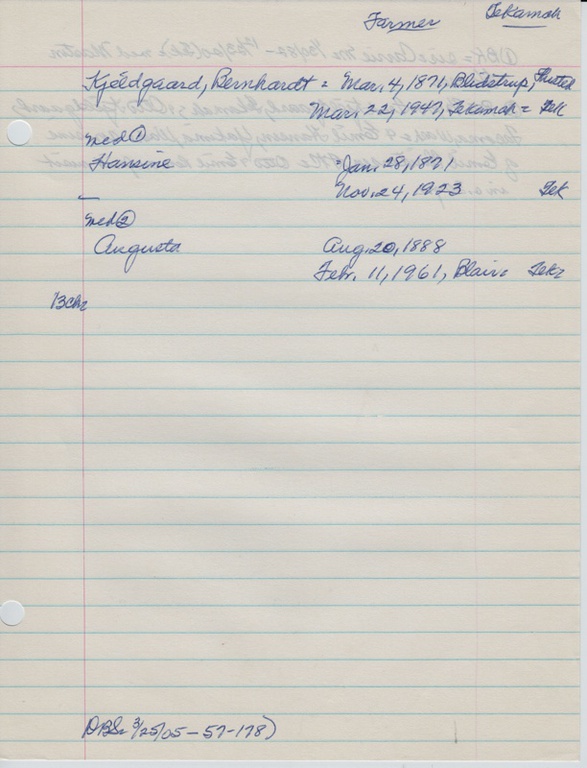 Farmer Tekamah
Kjeldgaard, Bernhardt = Mar. 4, 1871, Blidstrup, Thisted
Mar. 22, 1947, Tekamah = Tek
med ①
Hansine Jan. 28, 1871
Nov. 24, 1923 Tek
med ②
Augusta Aug. 20, 1888
Febr. 11, 1961, Blair = Tek
13ch
DBS 3/25/05 — 57-178)